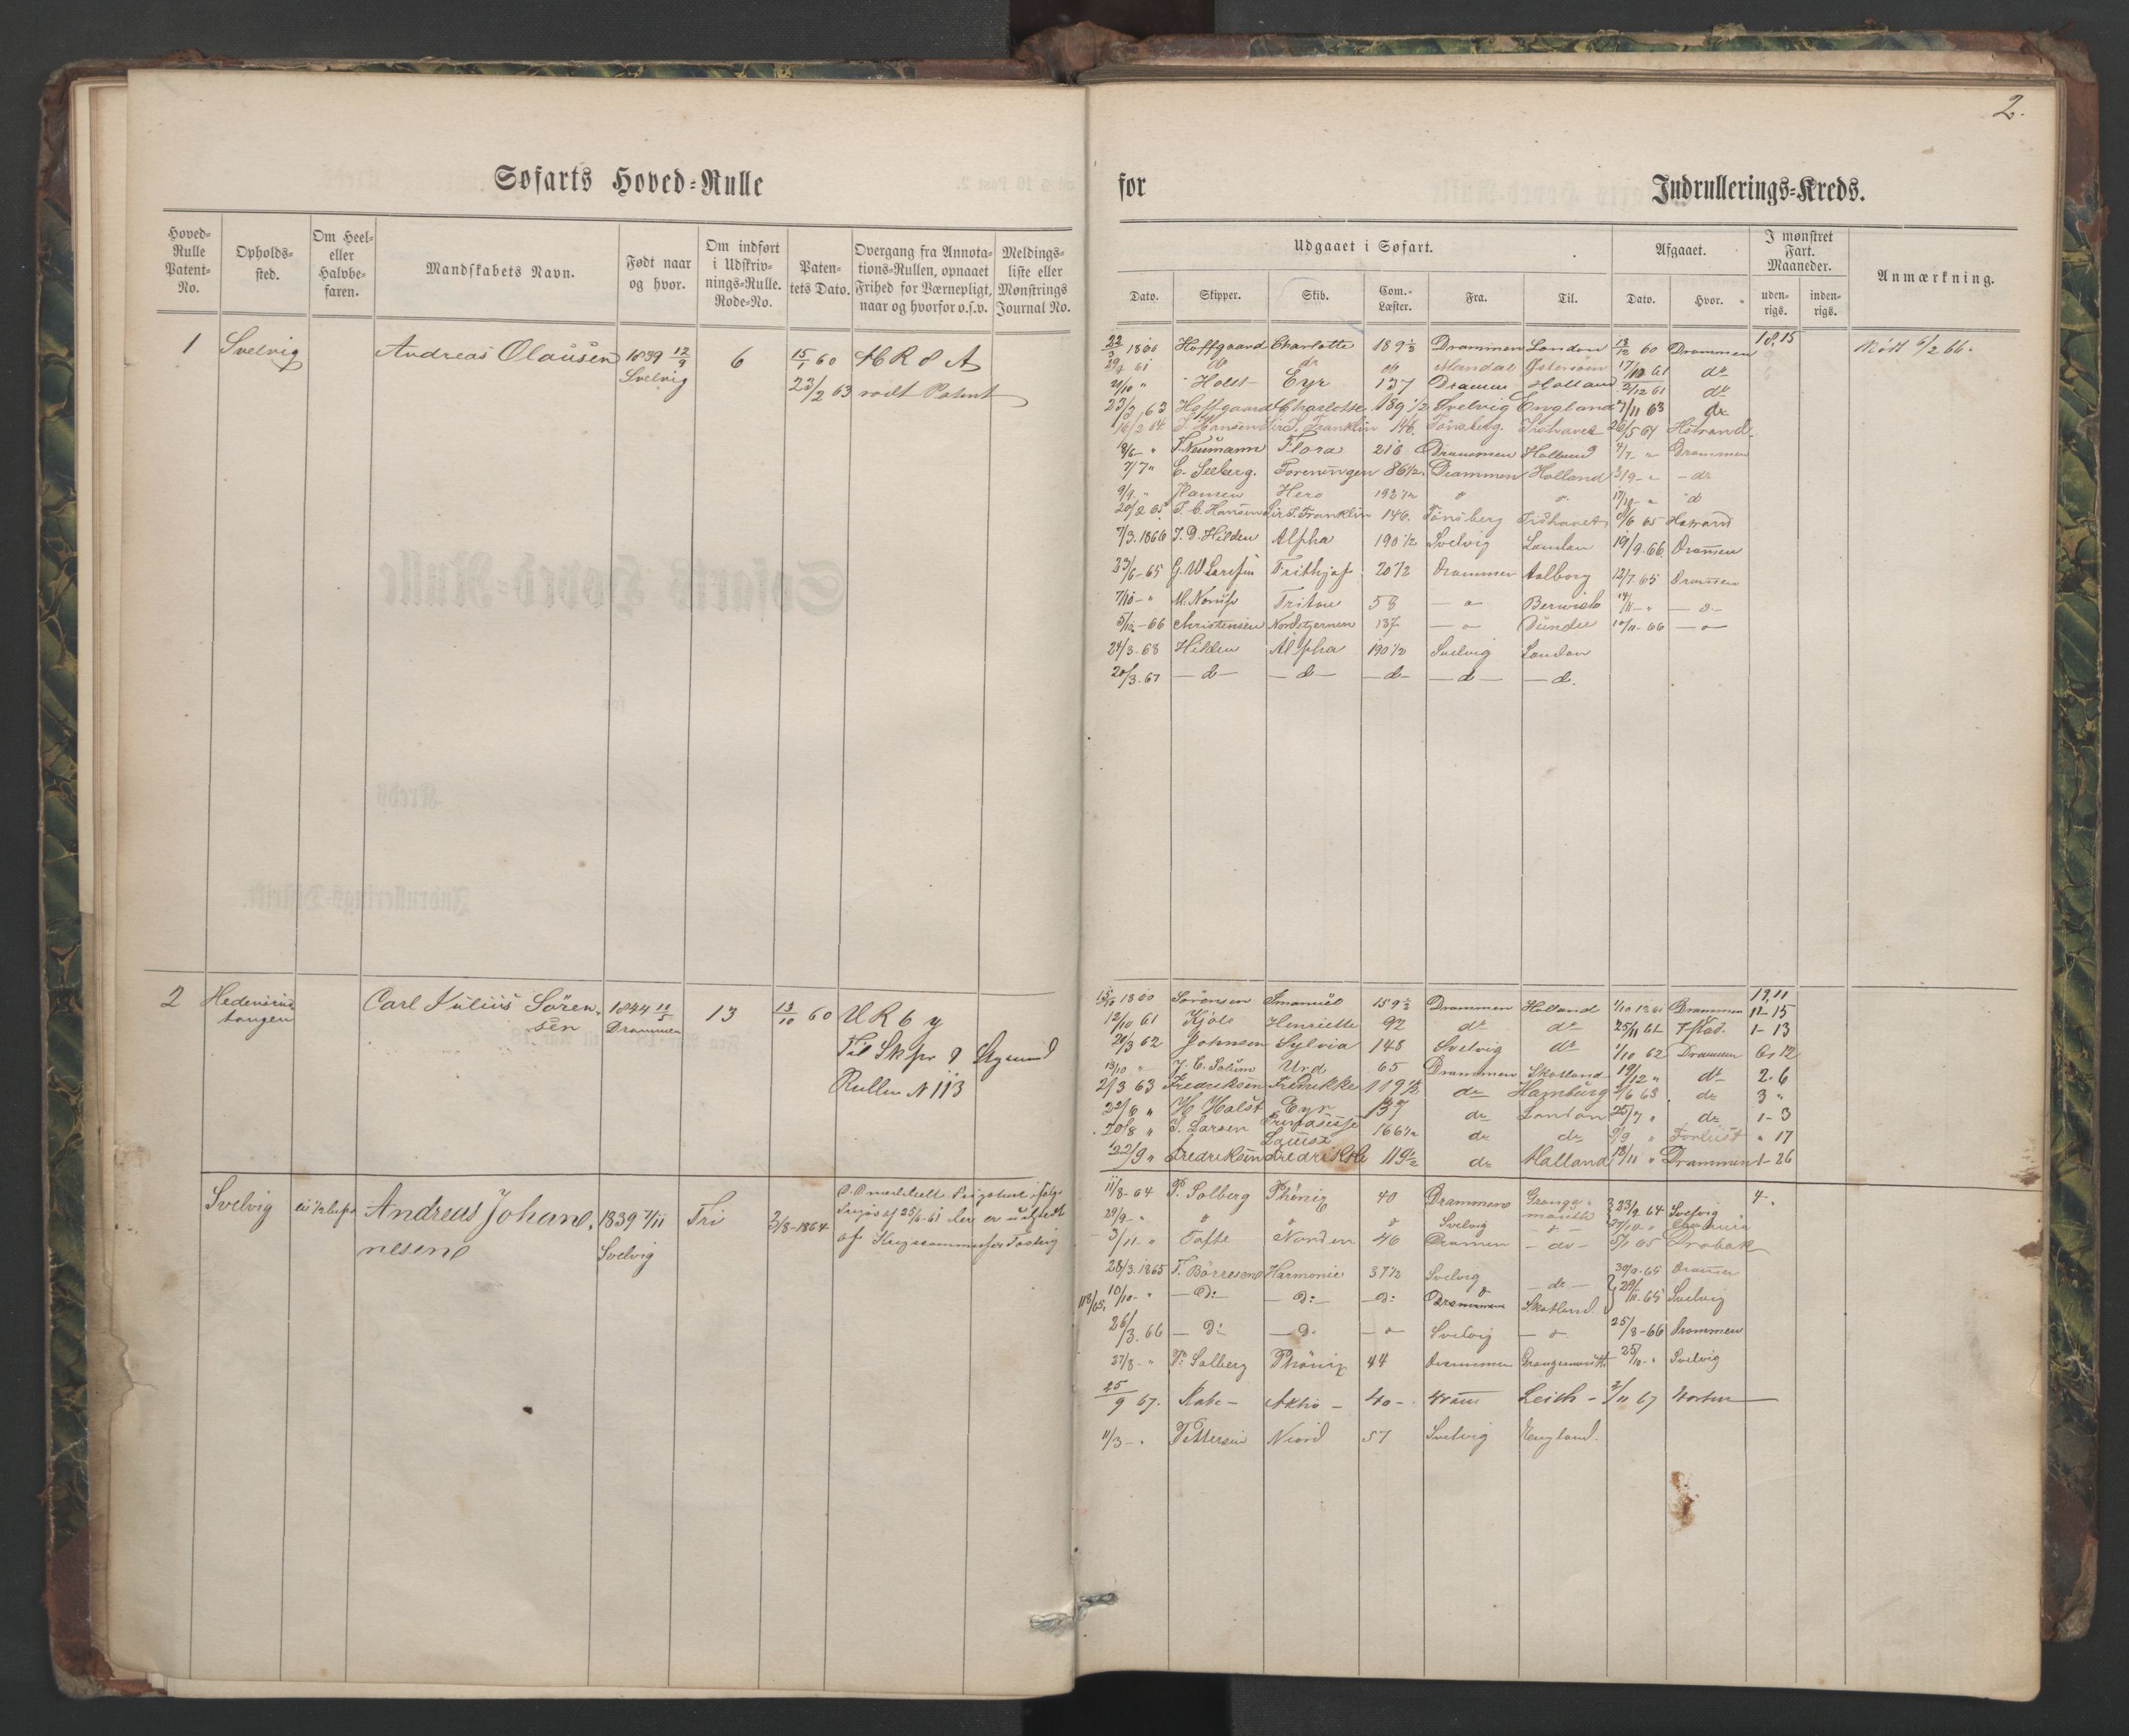 2.
Søfarts Hoved-Rulle for Indrullerings-Kreds.
Hoved-Rulle Patent-No.
Opholds-sted.
Om Heel- eller Halvbe-faren.
Mandskabets Navn.
Født naar og hvor.
Om indført i Udskriv-nings-Rulle. Rode-No.
Paten-tets Dato.
Overgang fra Annota-tions-Rullen, opnaaet Frihed for Værnepligt, naar og hvorfor o.s.v.
Meldings-liste eller Mønstrings Journal No.
Udgaaet i Søfart.
Dato. Skipper. Skib. Com.-Læster. Fra. Til.
Afgaaet.
Dato. Hvor.
I mønstret Fart. Maaneder.
uden-rigs. inden-rigs.
Anmærkning.
1 Svelvig Andreas Olausen 1839 12/9 6 15/1 60 HR 8 A
Svelvig 23/2 63 rødt Patent
22/3 1860 Hoffgaard Charlotte 189 1/2 Drammen London 13/12 60 Drammen 18,15 Mødt 6/2 66.
29/4 61 do do do Mandal Østersøen 17/10 61 do
21/10 " Holst Eyr 137 Drammen Holland 2/12 61 do
23/3 63 Hoffgaard Charlotte 189 1/2 Svelvig England 7/11 63 do
16/2 64 Hansen Sir J. Franklin 146. Tönsberg. Ishavet 26/5 64 Hstrand
8/6 " T. Neumann Flora 218 Drammen Holland 4/7 " Drammen
7/7 " C. Seeberg. Foreningen 86 1/2. Drammen Holland 3/9 - " - do
9/9. " Hansen Hero 192 1/2 " " " d
20/2 65 T. C. Hansen Sir J. Franklin 146. Tönsberg Ishavet 8/6 65 Hstrand
7/3. 1866 J. D. Hilden Alpha 190 1/2 Svelvig London 19/9-66. Drammen
23/6-65 G. W. Larsen Frithjof 20 1/2 Drammen Aalborg 12/7-65 Drammen
7/10 - " M. Triton 58 — " Berwick 14/11 - " — " —
5/10 - 66 Christensen Nordstjernen 137 — " — Dundee 10/11-66 — " —
24/3-68 Hilden Alpha 190 1/2 Svelvig London
20/3.67 — d — — d — — d — — d — — d.
2 Hedensrud-tangen Carl Julius Sören-sen 1844 12/5 13 13/10 60 UR 6 y
Drammen
Til Skpr & Styrmd
Rullen N 113
15/10 1860 Sörensen Emanuel 159 1/2 Drammen Holland 1/10 1861 Drammen 19,11
11-15
12/10 61 Kjöls Henriette 92 do do 25/11 61 1-13
20/3 62 Johnsen Sylvia 148 Svelvig do 1/10 62 Drammen 6,12
13/10 " J. C. Solum Urd 65 Drammen Skotland 19/12 " do 2.6
2/3 63 Fredriksen Fredrikke 119 1/2 do Hamburg 4/6 63 do 3 "
22/6 " H. Holst Eyr 137 do London 25/7 " do 1-3
20/8 " J. Larsen Prinsesse Louise 166 1/2 do do 9/9 " Forliist " 17
22/9 " Fredriksen Fredrikke 119 1/2 do Holland 18/11 " Drammen 1-26
Svelvig Andreas Johan-nesen 1839 7/11 Fri 2/8-1864
Svelvig
11/8-64 P. Solberg Phönix 40 Drammen Grange-mouth 23/9 64 Svelvig 4-.
29/9 - " " " " Svelvig — " — 27/10 - "
3/11 - " Tofte Norden 46 Dramen — do — 5/1 65 Drøbak
28/3. 1865 T. Börresen Harmonie 37 1/2 Svelvig — do — 30/9-65 Dramen
118/65. 10/10 - " — D: — — D: — — D: Drammen Skotland. 29/11-65 Svelvig
26/3. 66 — D: — D. — " Svelvig — " 25/8-66 Drammen
27/8 - " P. Solberg Phönix 44 Drammen Grangemouth 25/10 - " Svelvig
25/9 67. Aktiv — 40 — Leith — 2/11 67 Horten
11/3 - " Pettersen Niord 57 Svelvig England.